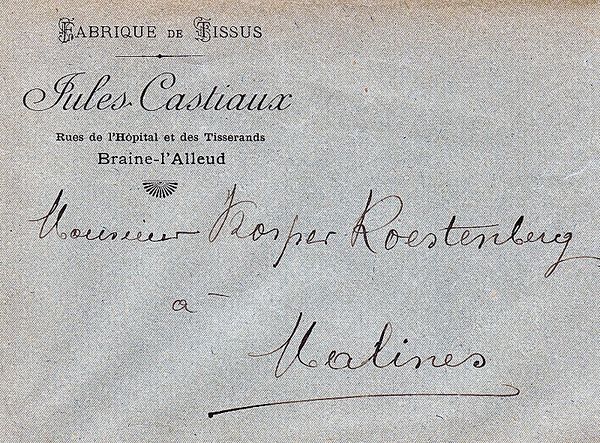 FABRIQUE DE TISSUS
Jules Castiaux
Rues de l'Hôpital et des Tisserands
Braine-l'Alleud
Monsieur Kosper Roestenberg
à
Malines